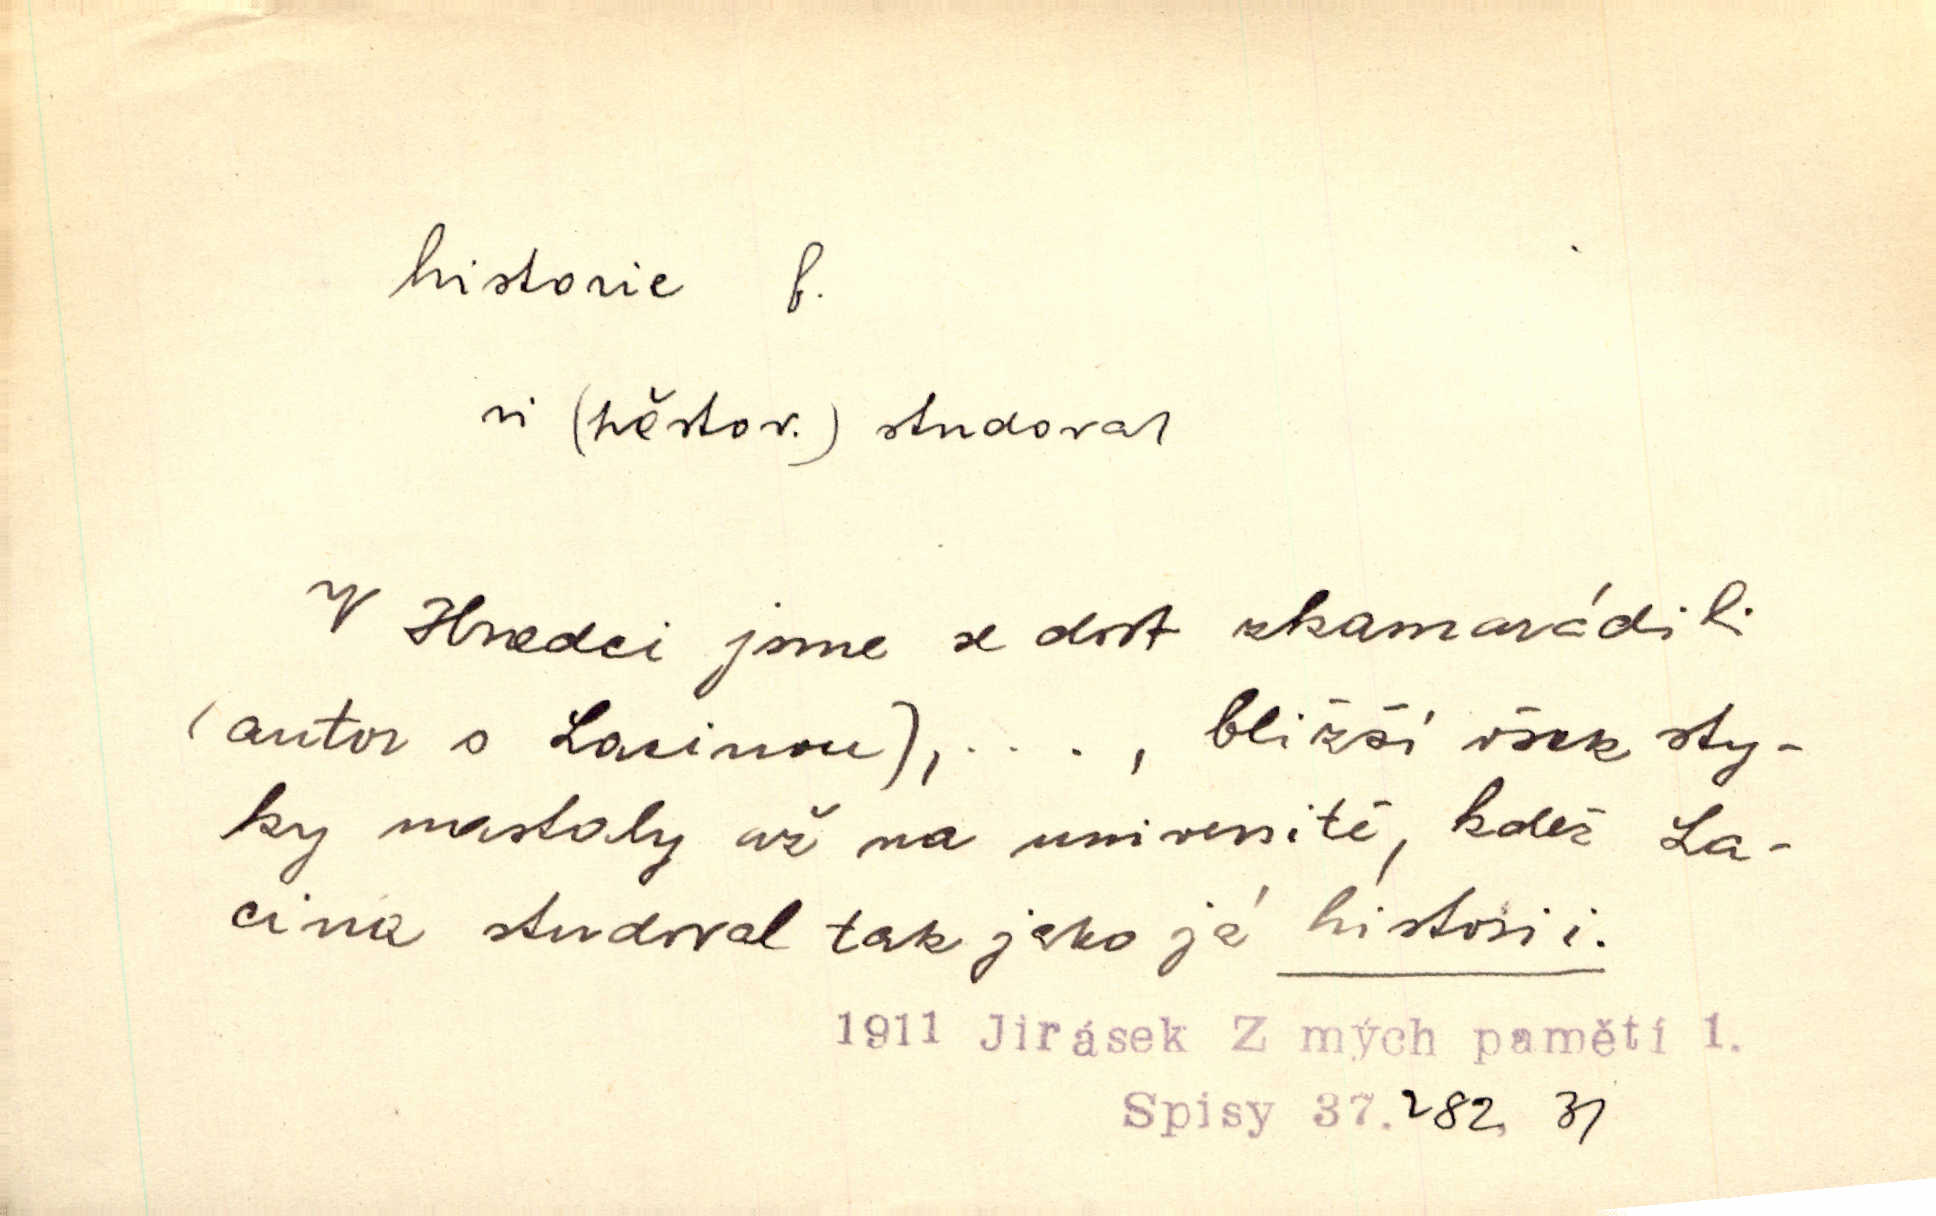 historie f.
vi (pěstov.) studovat
V Hradci jsme se dost zkamarádili
(autor s Lacinou), . . . , bližší však sty-
ky nastaly až na universitě, kdež La-
cina studoval tak jako já historii.
1911 Jirásek Z mých pamětí 1.
Spisy 37. 282, 31